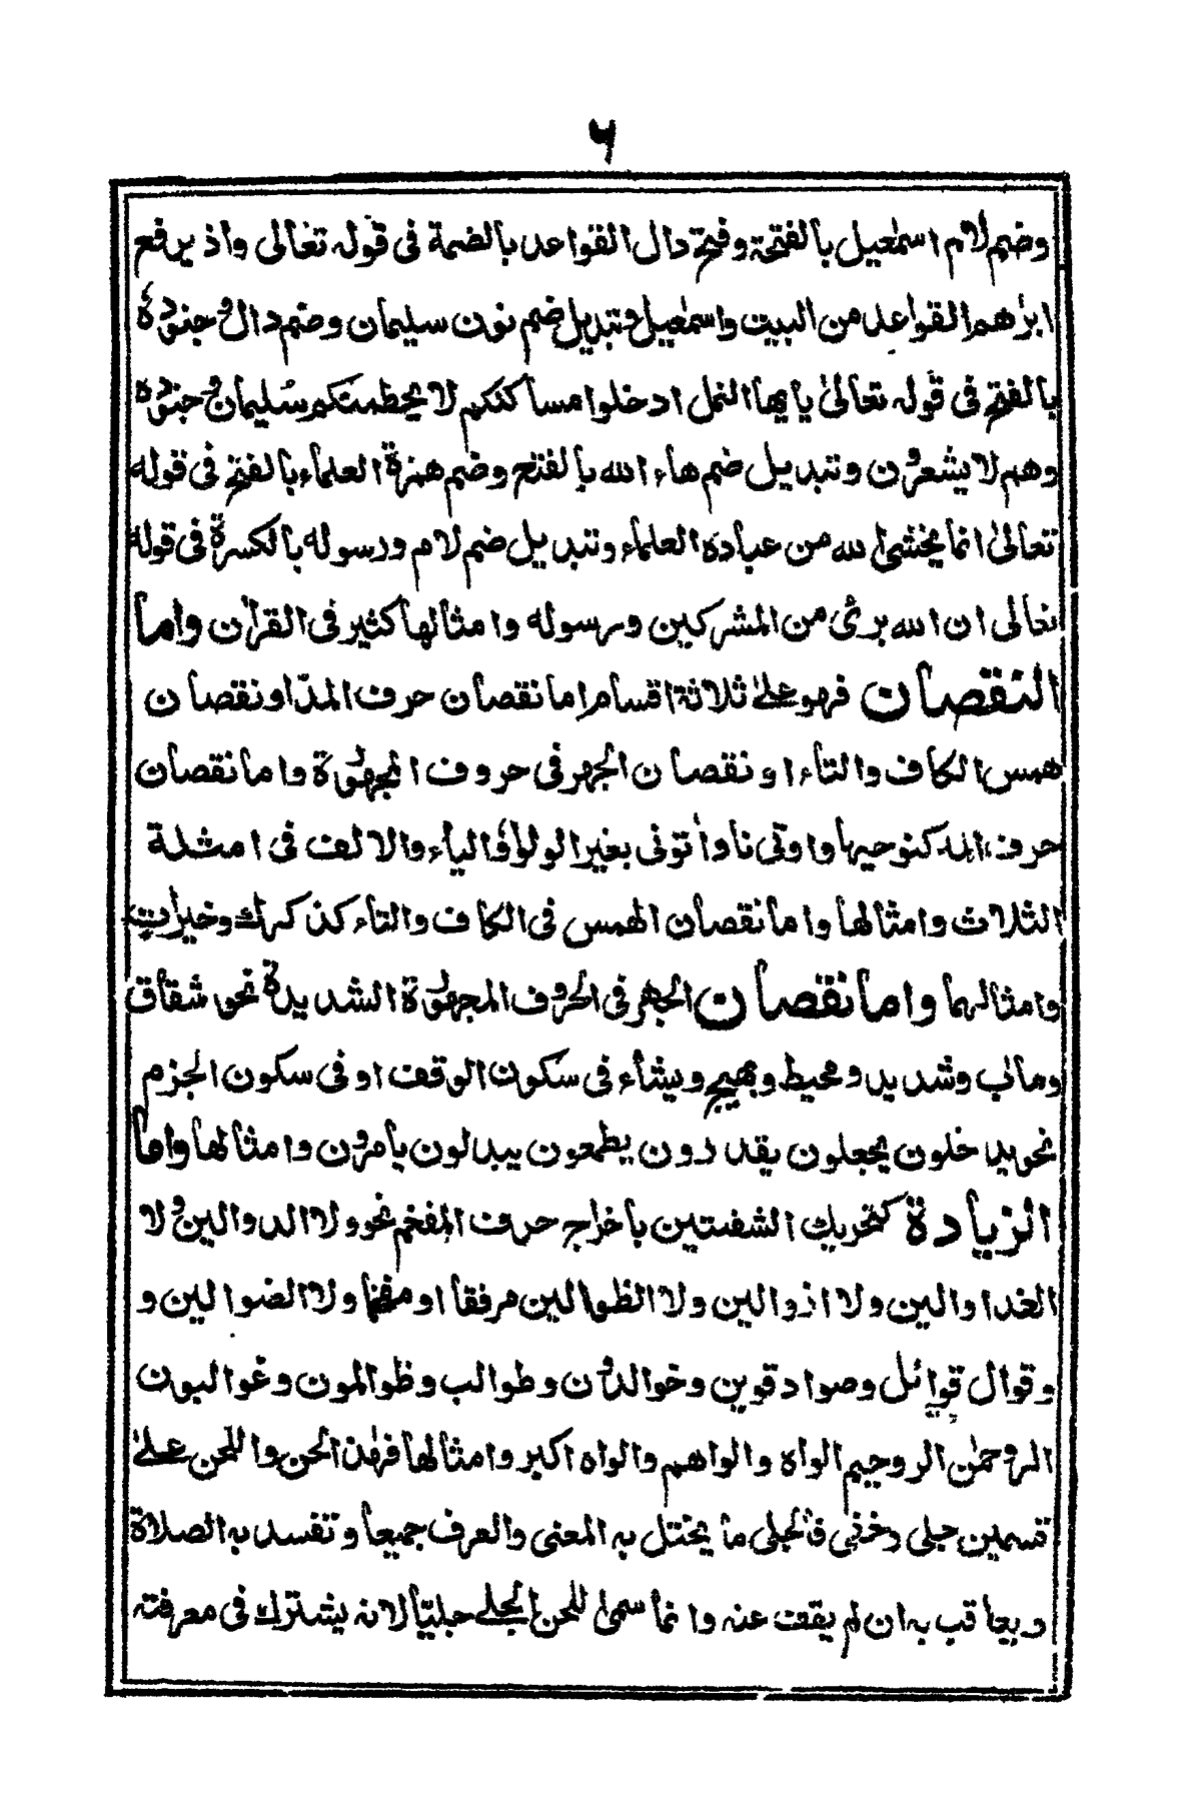 ٦
وضم لام اسمٰعيل بالفتحة وفتح دال القواعد بالضمة فى قوله تعالى واذ يرفع
ابرٰهم القواعد من البيت واسمٰعيل وتبديل ضم نون سليمان وضم دال وجنوده
بالفتح فى قوله تعالىٰ يايها النمل ادخلوا مساكنكم لا يحطمنكم سُليمان وجنوده
وهم لا يشعرون وتبديل ضم هاء الله بالفتح وضم همزة العلماء بالفتح فى قوله
تعالىٰ انما يخشىٰ لله من عباده العلماء وتبديل ضم لام ورسوله بالكسرة فى قوله
تعالى ان الله برئ من المشركين ورسوله وامثالها كثير فى القرآن واما
النقصان فهو علىٰ ثلاثة اقسام اما نقصان حرف المدّ او نقصان
همس الكاف والتاء او نقصان الجهر فى حروف المجهورة واما نقصان
حرف المد كنوحيها واوتى نا وأتونى بغير الواو والياء والالف فى امثلة
الثلاث وامثالها واما نقصان الهمس فى الكاف والتاء كذكرك وخيرات
وامثالهما واما نقصان الجهر فى الحروف المجهورة الشديدة نحو شقاق
ومأب وشديد ومحيط وبهيج ويشاء فى سكون الوقف او فى سكون الجزم
نحو يدخلون يجعلون يقدرون يطمعون يبدلون يأمرون وامثالها واما
الزيادة كتحريك الشفتين باخراج حرف المفخم نحو ولا الدوالين ولا
الغداوالين ولا اذوالين ولا الظوالين مرفقا او مفخما ولا الضوالين و
وقوال قوائل وصوادقوين وخوالدون وطوالب وظوالمون وغوالبون
الروحمٰن الروحيم الواه والواهم والواه اكبر وامثالها فهٰذا لحن واللحن علىٰ
قسمين جلى وخفى فالجلى ما يختل به المعنى والعرف جميعا وتفسد به الصلاة
ويعاقب به ان لم يقف عنه وانما سمىٰ للحن الجلے جليّا لانه يشترك فى معرفته